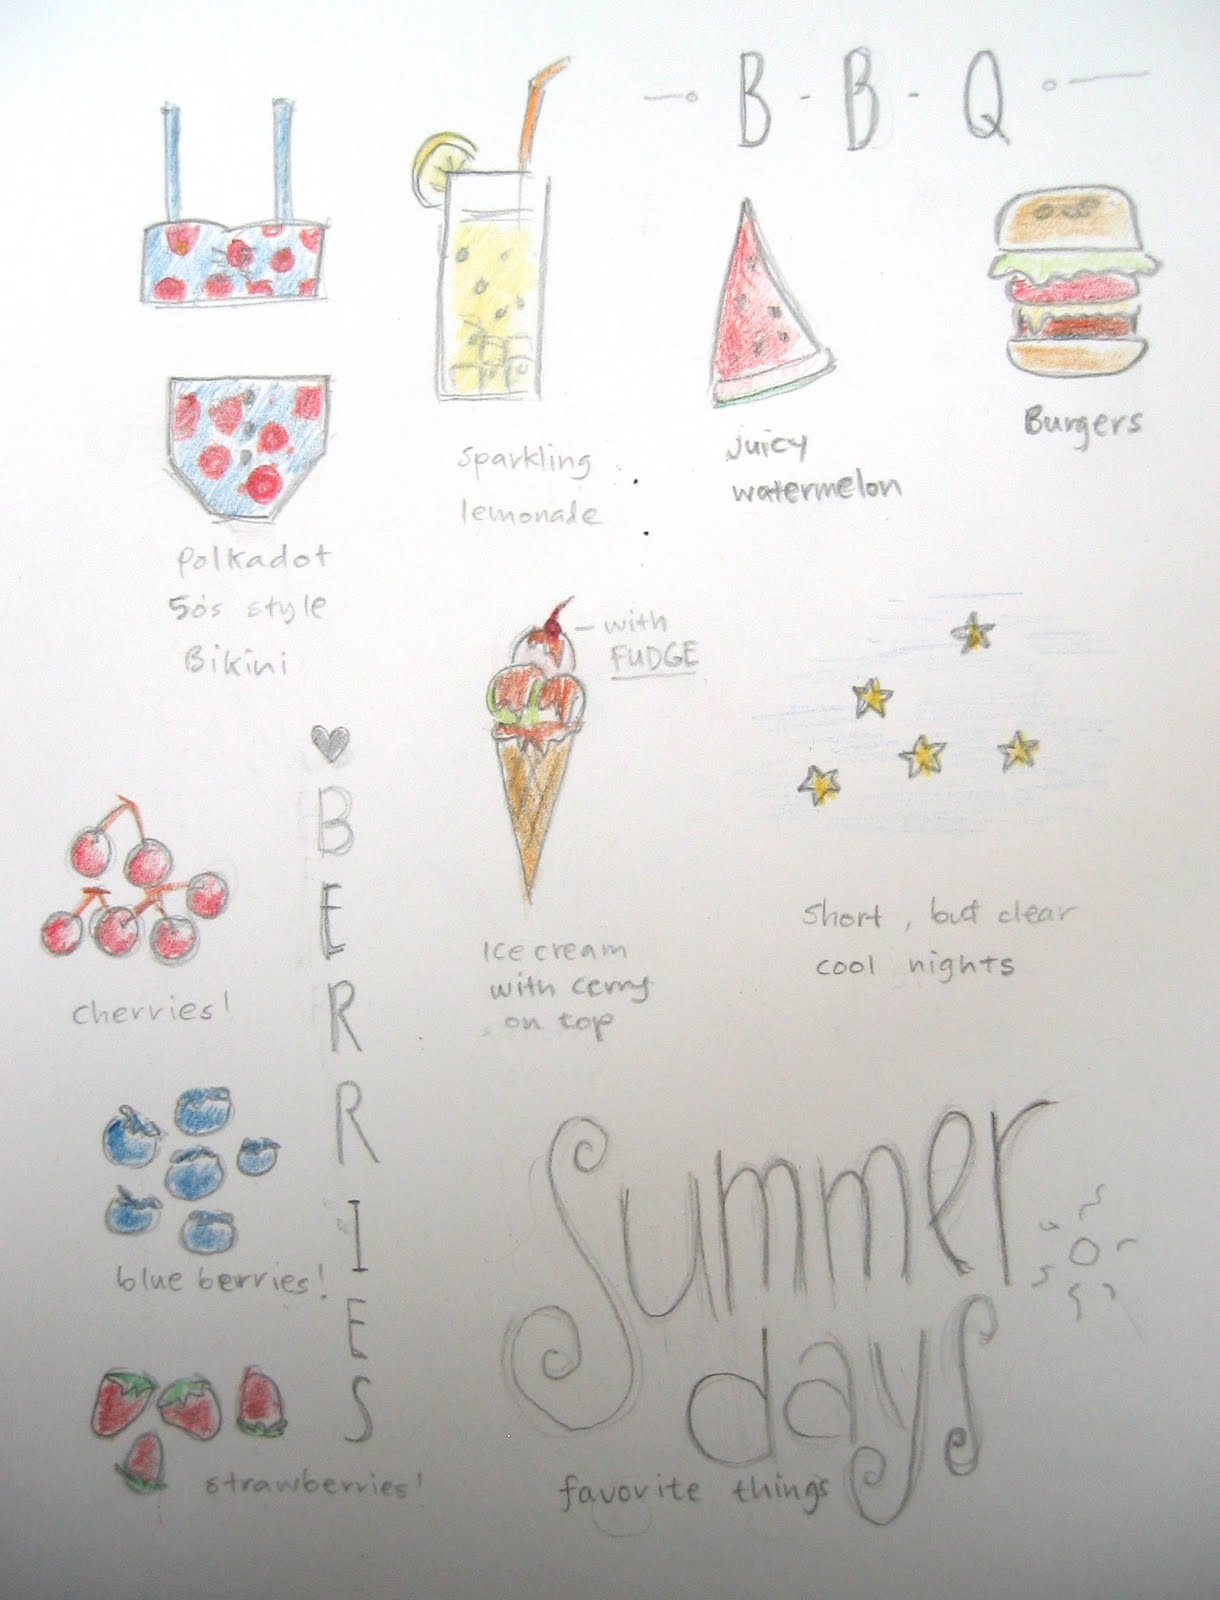 B - B - Q
Polkadot
50's style
Bikini
sparkling
lemonade
juicy
watermelon
Burgers
with
FUDGE
Ice cream
with cerry
on top
short, but clear
cool nights
BERRIES
cherries!
blue berries!
strawberries!
Summer
days
favorite things